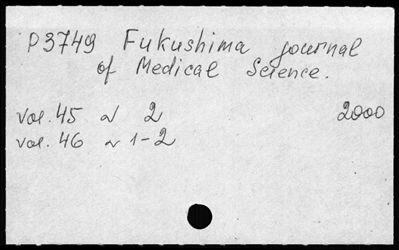 P3749 Fukushima journal
of Medical Science.
vol. 45 N 2 2000
vol. 46 N 1-2